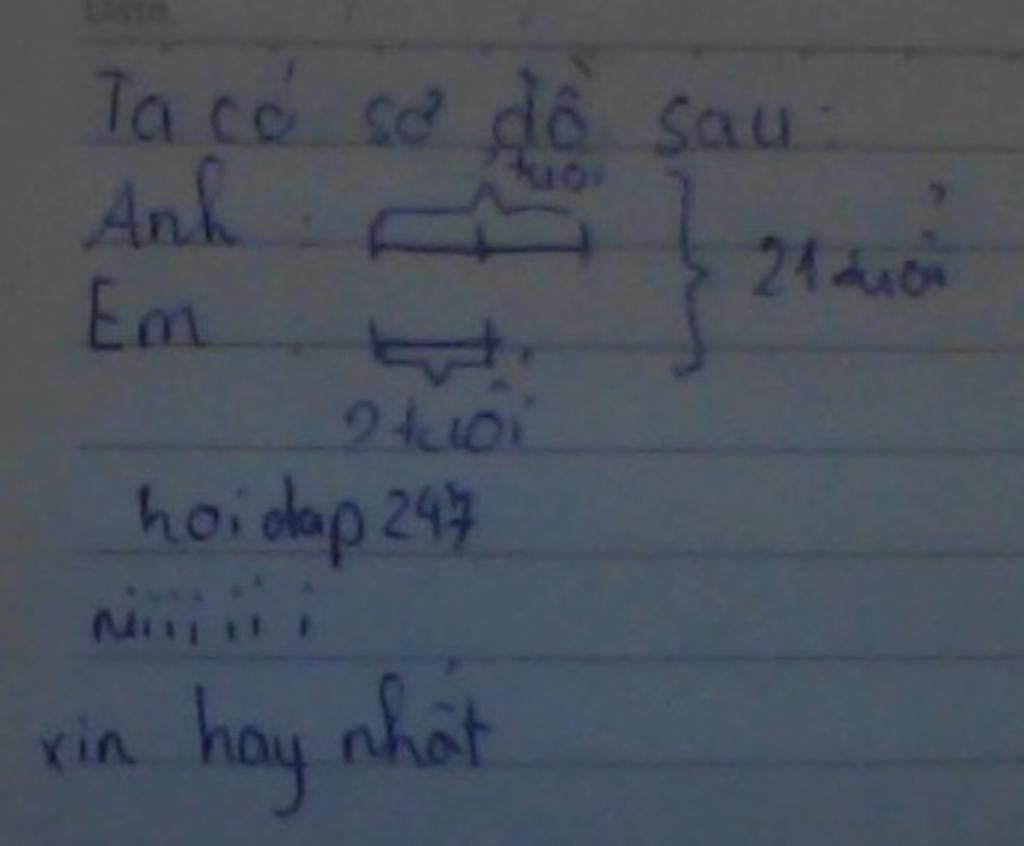 Date
Ta có sơ đồ sau:
? tuổi
Anh :
21 tuổi
Em :
? tuổi
hoidap247
xin hay nhất